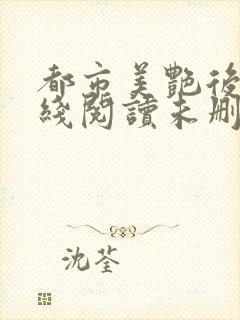 都市美艷後
綫閱讀未刪
沈荃